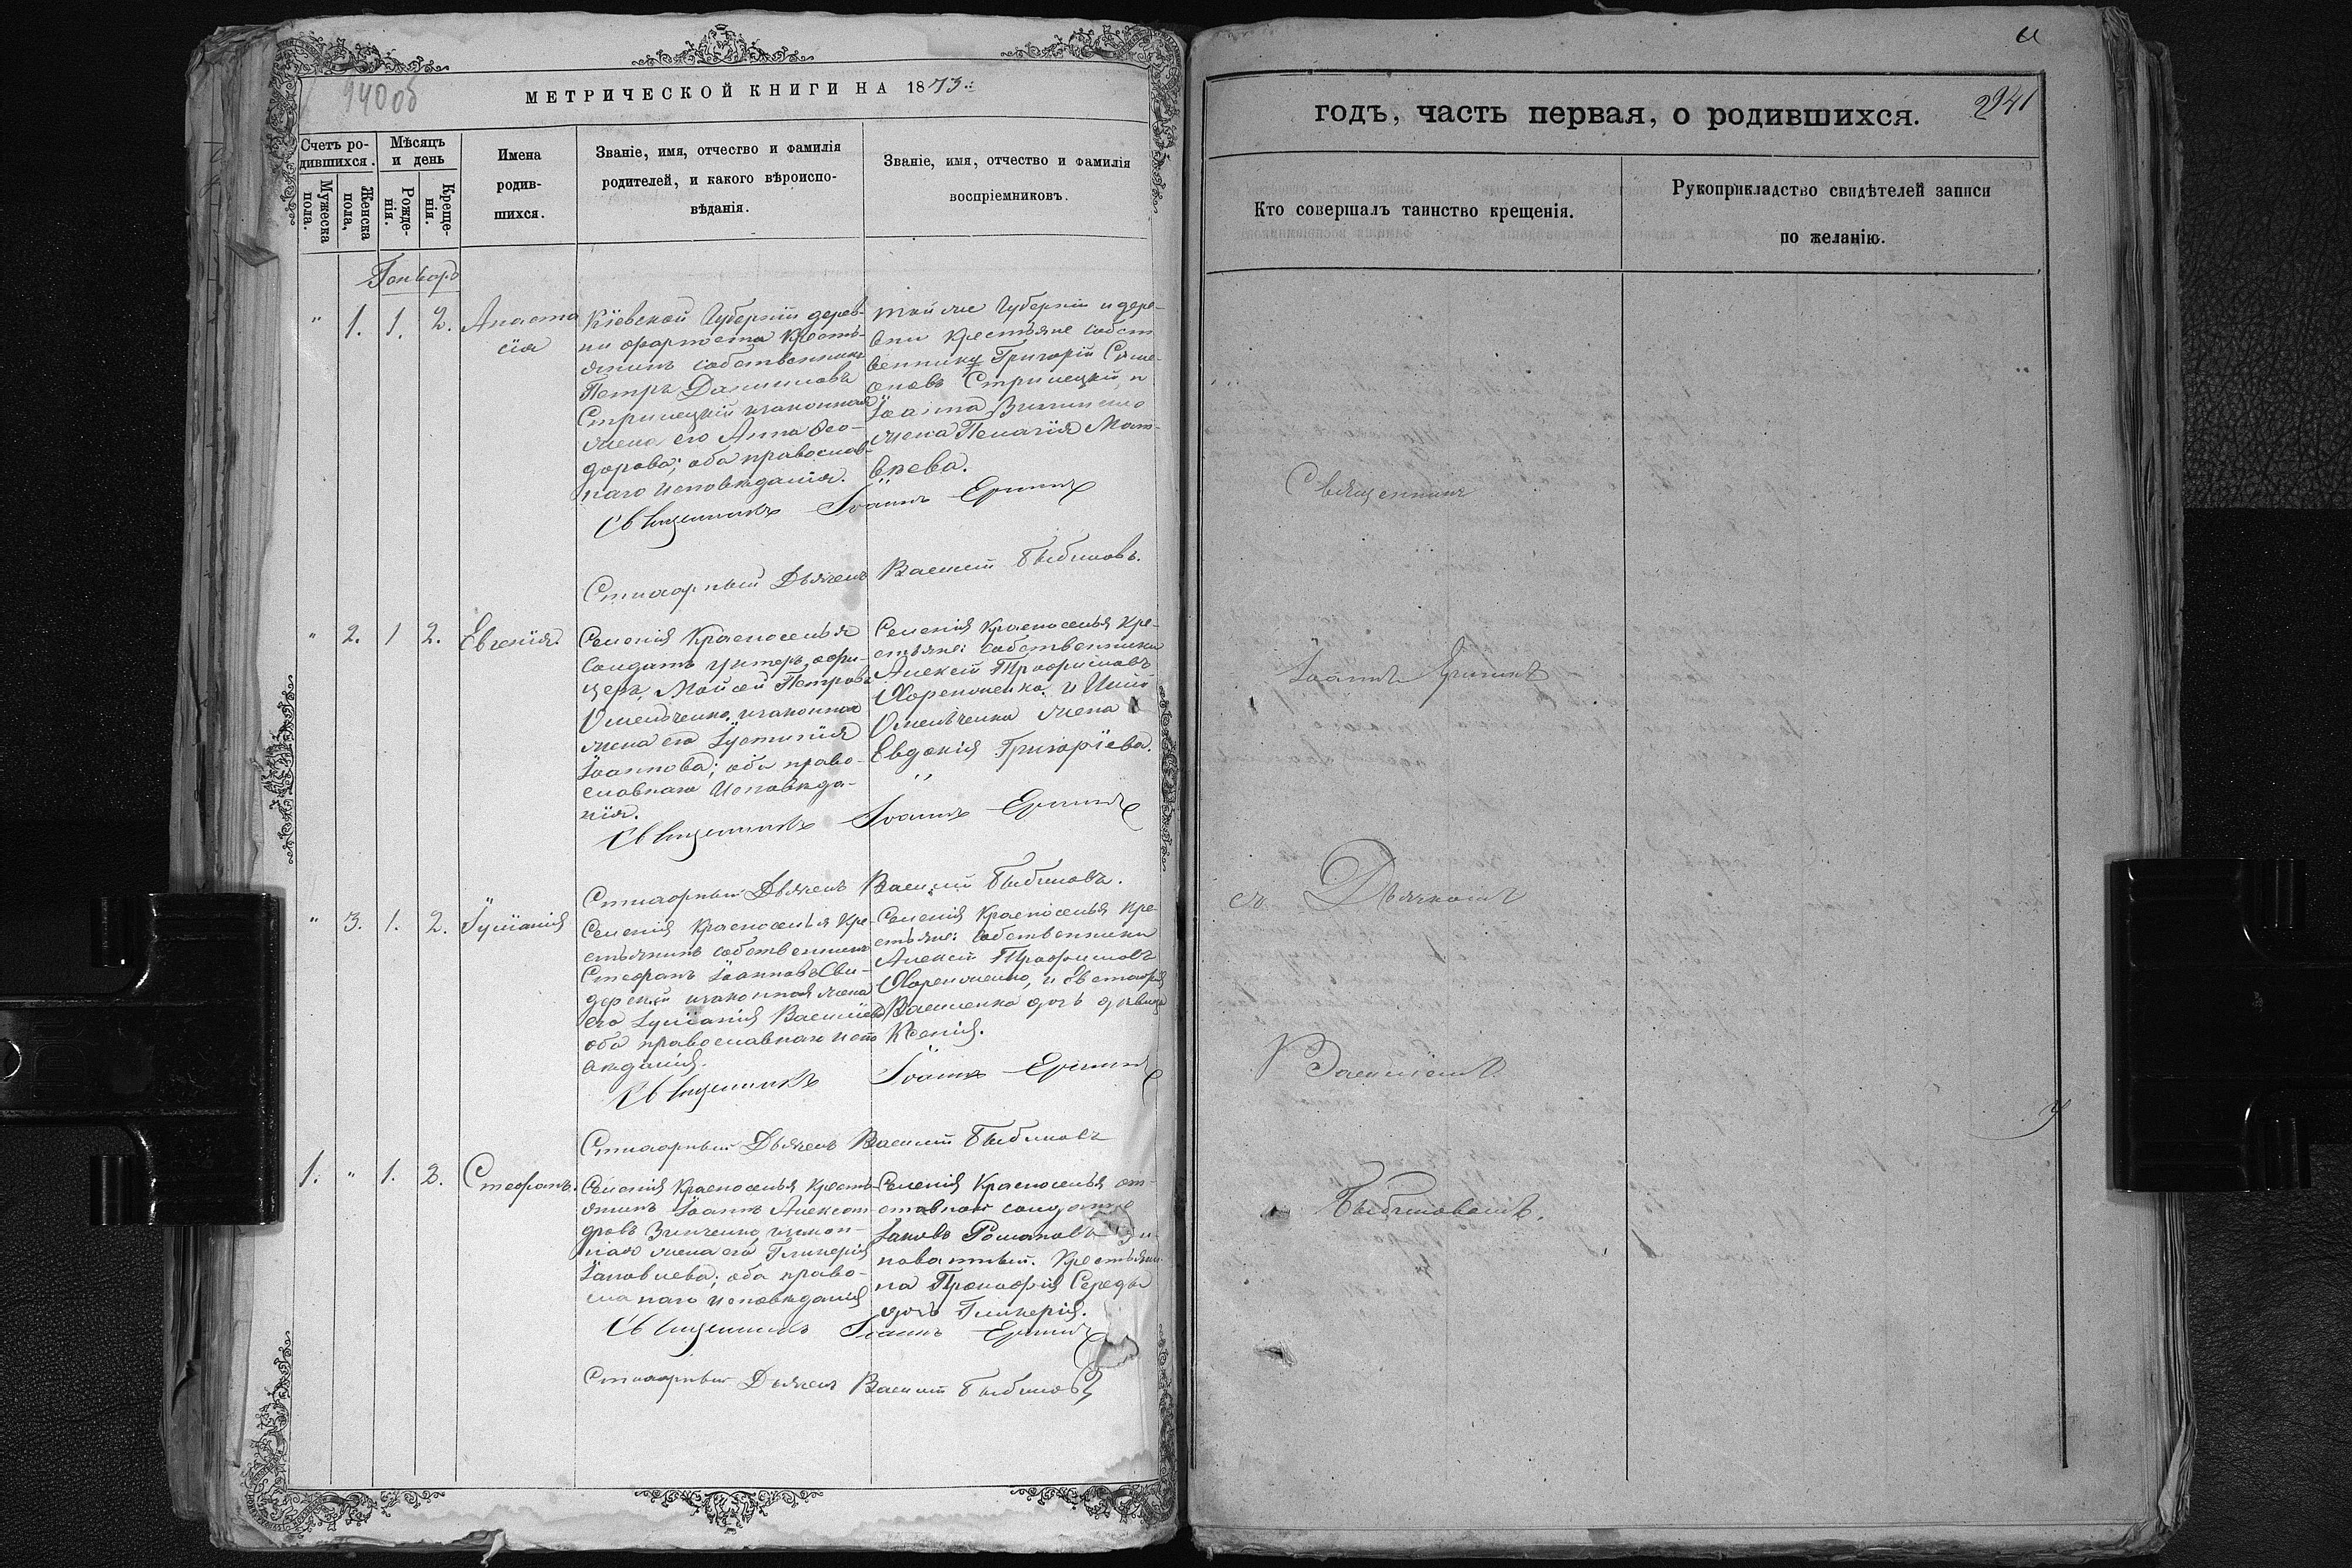 940об
МЕТРИЧЕСКОЙ КНИГИ НА 1873:
Счетъ ро-
дившихся.
Мужеска
пола.
Женска
пола,
Мѣсяцъ
и день
Рожде-
нія.
Креще-
нія.
Имена
родив-
шихся.
Званіе, имя, отчество и фамилія
родителей, и какого вѣроиспо-
вѣданія.
Званіе, имя, отчество и фамилія
воспріемниковъ.
Генварь
" 1. 1. 2. Анаста
сія
Кіевской Губерніи дерев-
ни Фарпоста Кресть-
янинъ собственникъ
Петръ Даниловъ
Стрилецкій изаконная
жена его Анна Ѳео-
дорова; оба православ-
наго исповѣданія.
той же Губерніи и дере-
вни Крестьяне собст
венники Григорій Симе-
оновъ Стрилецкій, и
Іоанна Зинченко
жена Пелагія Мат-
вѣева.
Священникъ Іоаннъ
Стихарный Дьячекъ Василій
" 2. 1 2. Евгенія.
Селенія Красноселья
солдатъ унтеръ, офи-
церъ, Мойсей Петровъ
Омельченко, изаконная
жена его Іустинія
Іоаннова; оба право-
славнаго исповѣда-
нія.
Селенія Красноселья Кре-
стьяне: собственники
Алексѣй Трофимовъ
Омельченка жена
Евдокія Григоріева.
Священникъ Іоаннъ
Стихарный Дьячекъ Василій
" 3. 1. 2. Іуліанія
Селенія Красноселья Кре-
стьянинъ собственникъ
Стефанъ Іоанновъ Сви-
дерскій изаконная жена
его Іуліанія Василіева
оба православнаго испо
вѣданія.
Селенія Красноселья Кре-
стьяне: собственники
Алексѣй Трофимовъ
Василенка дочь дѣвица
Ксенія.
Священникъ Іоаннъ
Стихарный Дьячекъ Василій
1. " 1. 2. Стефанъ.
Селенія Красноселья Кресть-
янинъ Іоаннъ Алексан
дровъ Зинченко, изакон-
ная жена его Гликерія
Іаковлева; оба право-
сла наго исповѣданія
Селенія Красноселья от-
ставной солдатъ
Іаковъ Романовъ
Крестьяни
на Прокофія Середы
дочь Гликерія.
Священникъ Іоаннъ
Стихарный Дьячекъ Василій
годъ, часть первая, о родившихся.
941
Кто совершалъ таинство крещенія.
Рукоприкладство свидѣтелей записи
по желанію.
Священникъ
Іоаннъ
съ Дьячкомъ
Василіемъ